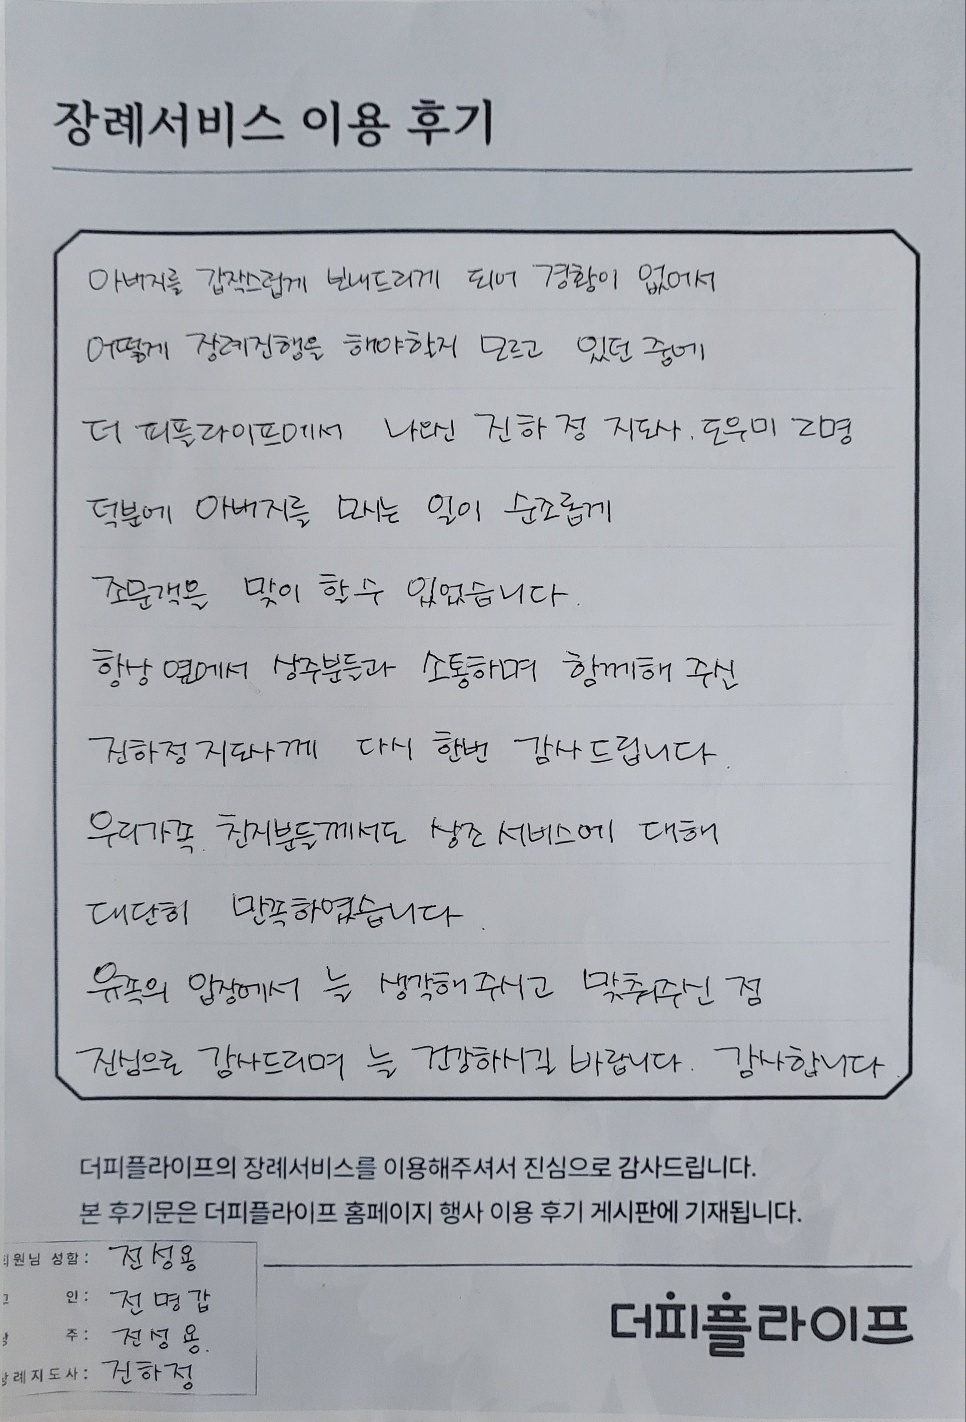 장례서비스 이용 후기
아버지를 갑작스럽게 보내드리게 되어 경황이 없어서
어떻게 장례진행을 해야할지 모르고 있던 중에
더 피플라이프에서 나오신 진하정 지도사. 도우미 2명
덕분에 아버지를 모시는 일이 순조롭게
조문객을 맞이 할 수 있었습니다.
항상 옆에서 상주분들과 소통하며 함께해 주신
진하정 지도사께 다시 한번 감사 드립니다.
우리가족. 친지분들께서도 상조 서비스에 대해
대단히 만족하였습니다.
유족의 입장에서 늘 생각해 주시고 맞춰주신 점
진심으로 감사드리며 늘 건강하시길 바랍니다. 감사합니다.
더피플라이프의 장례서비스를 이용해주셔서 진심으로 감사드립니다.
본 후기문은 더피플라이프 홈페이지 행사 이용 후기 게시판에 기재됩니다.
회원님 성함: 전성용
고 인: 전명갑
상 주: 전성용.
장례지도사: 진하정
더피플라이프